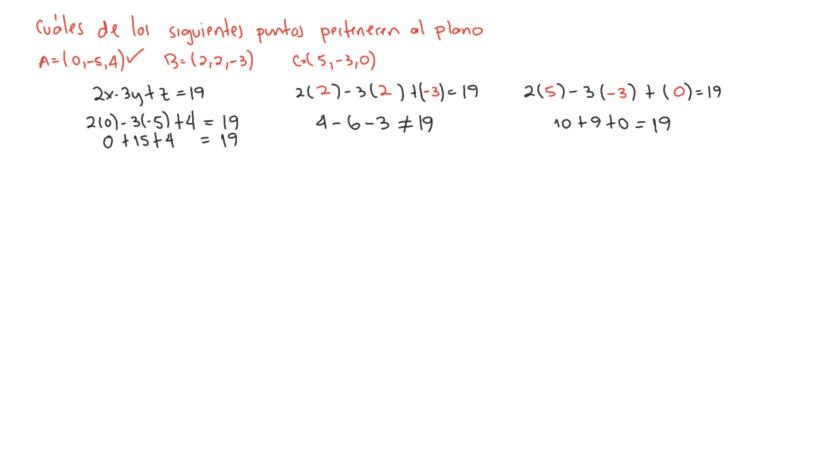 Cuáles de los siguientes puntos pertenecen al plano
A=(0,-5,4)✓ B=(2,2,-3) C=(5,-3,0)
2x-3y+z=19 2(2)-3(2)+(-3)=19 2(5)-3(-3)+(0)=19
2(0)-3(-5)+4=19 4-6-3≠19 10+9+0=19
0+15+4=19